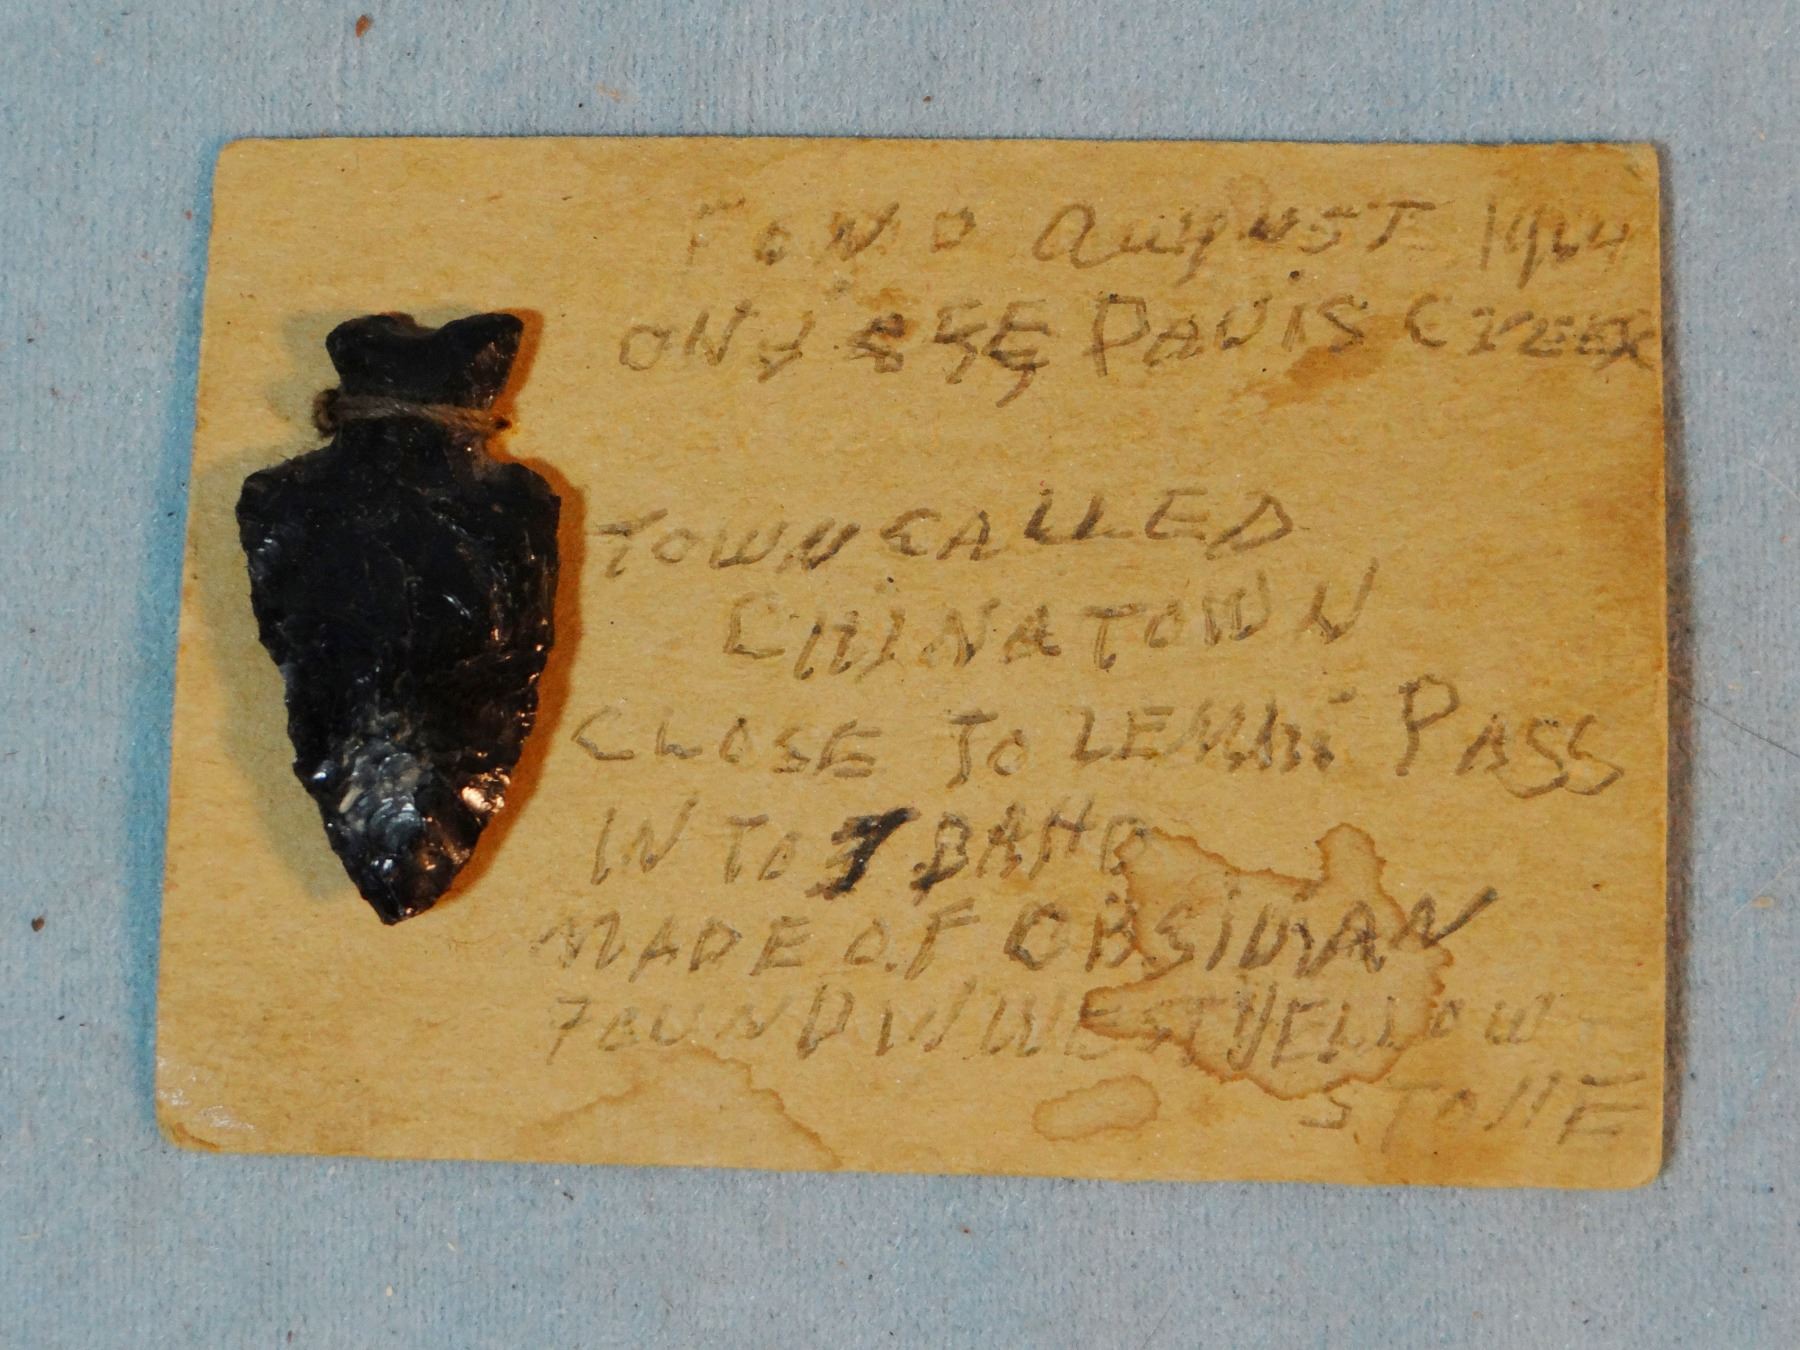 FOND AUgUST 1964
ON JESSE DAViS CrEEK
TOWN CALLED
CHiNATOWN
CLOSE TO LEMHi PASS
IN TO IDAHO
MADE OF OBSiDIAN
FOUND IN WEST YELLOW
STONE